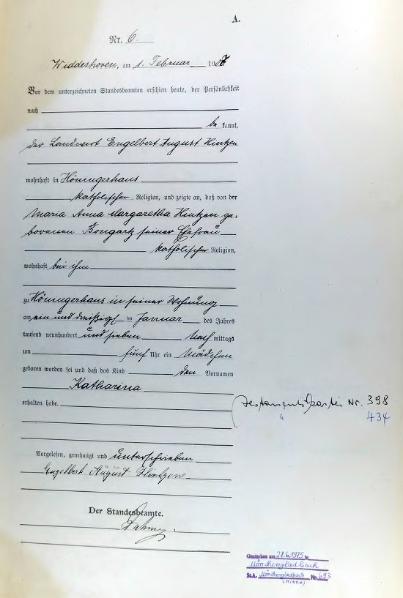 A.
Nr. 6
Widdeshoven, am 1. Februar 1907
Vor dem unterzeichneten Standesbeamten erschien heute, der Persönlichkeit
nach
be kannt,
der Landwirt Engelbert August Hintzen
wohnhaft in Höningerhaus
katholischer Religion, und zeigte an, daß von der
Maria Anna Margaretha Hintzen ge-
borenen Bongartz seiner Ehefrau
katholischer Religion,
wohnhaft bei ihm
zu Höningerhaus in seiner Wohnung
am ein und dreißigsten Januar des Jahres
tausend neunhundert und sieben Nach mittags
um fünf Uhr ein Mädchen
geboren worden sei und daß das Kind den Vornamen
Katharina
erhalten habe.
Testamentskartei Nr. 398
434
Vorgelesen, genehmigt und unterschrieben
Engelbert August Hintzen
Der Standesbeamte.
Gestorben am 28.6.1975 in
Mönchengladbach
St.A. Mönchengladbach Nr. 693